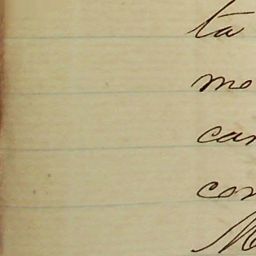 ta
mo
car
con
M